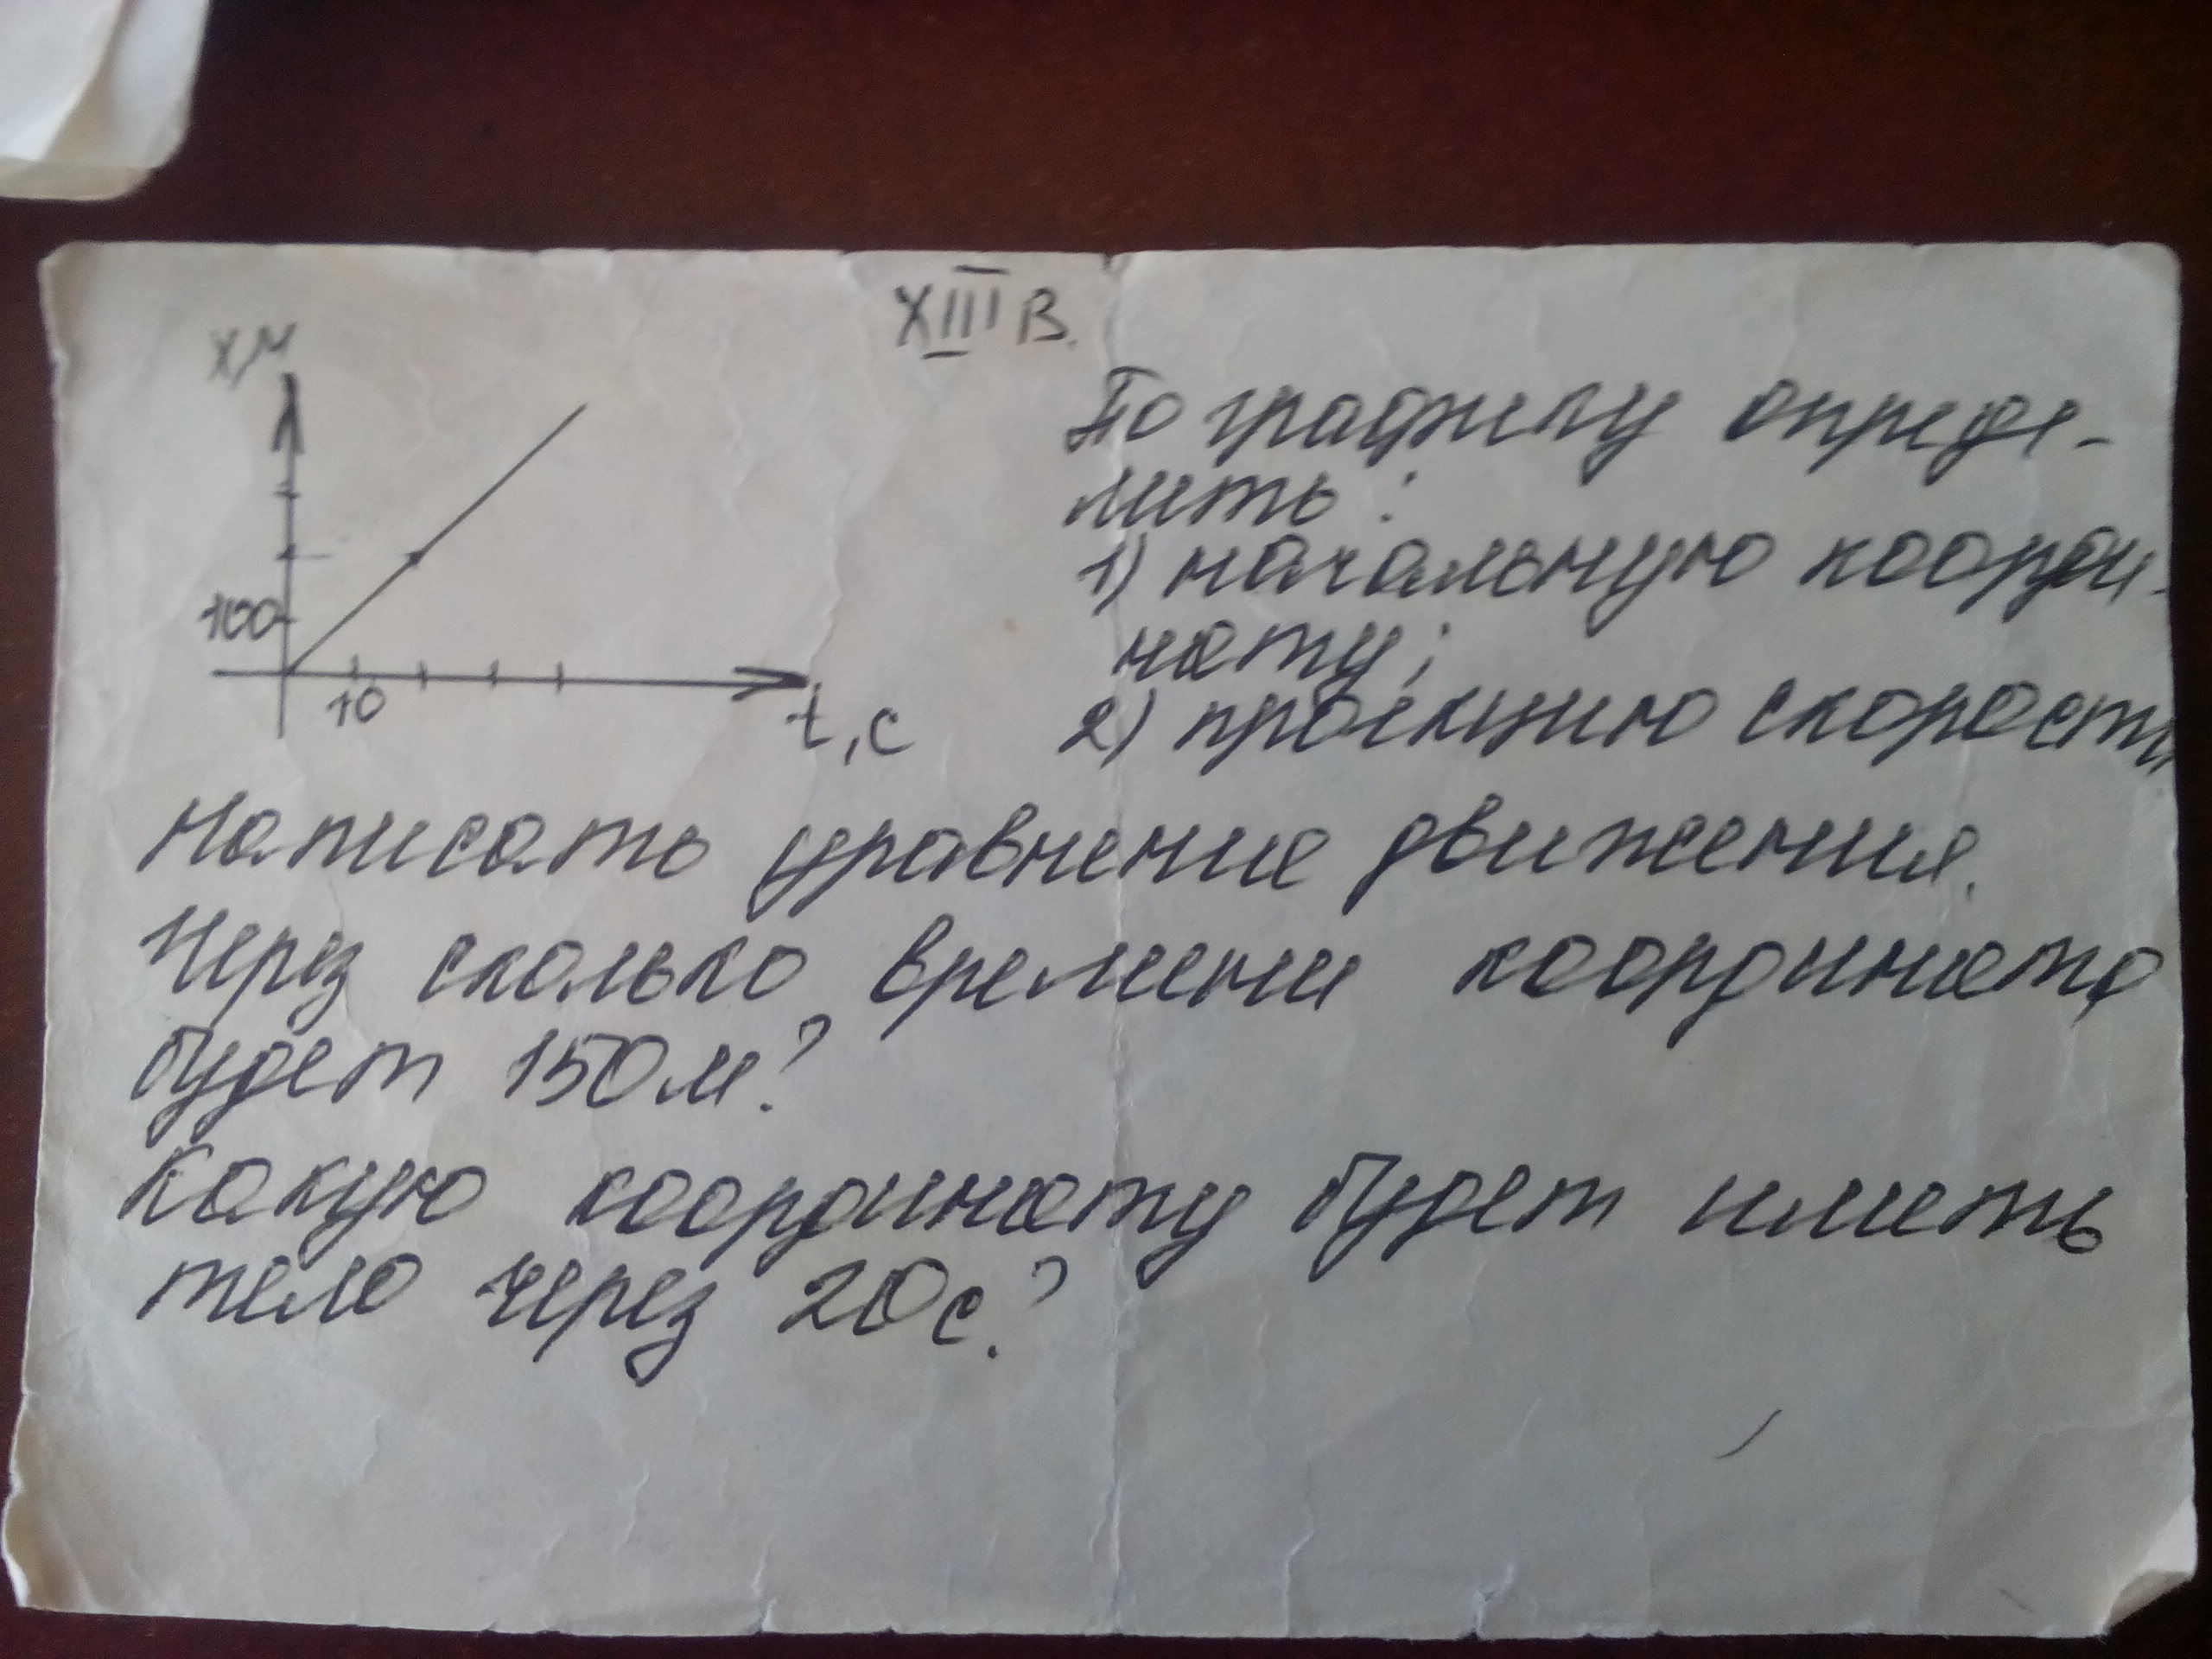 XIII В.
x,м
100
10
t,с
По графику опреде-
лить:
1) начальную коорди-
нату;
2) проекцию скорости
Написать уравнение движения.
Через сколько времени координата
будет 150м?
Какую координату будет иметь
тело через 20с?